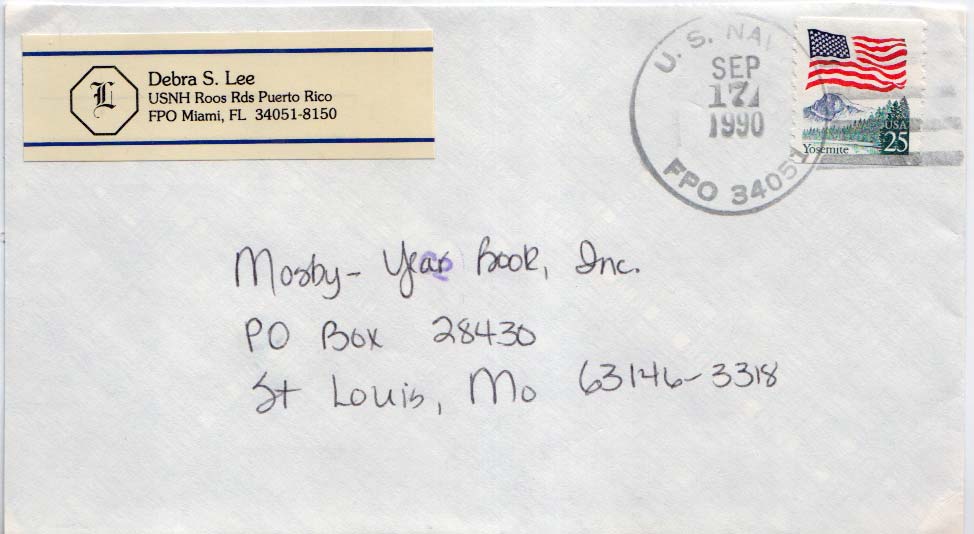 L
Debra S. Lee
USNH Roos Rds Puerto Rico
FPO Miami, FL 34051-8150
U. S. NA
SEP
17
1990
FPO 34051
Yosemite
USA
25
Mosby- Year Book, Inc.
PO Box 28430
St Louis, Mo 63146-3318